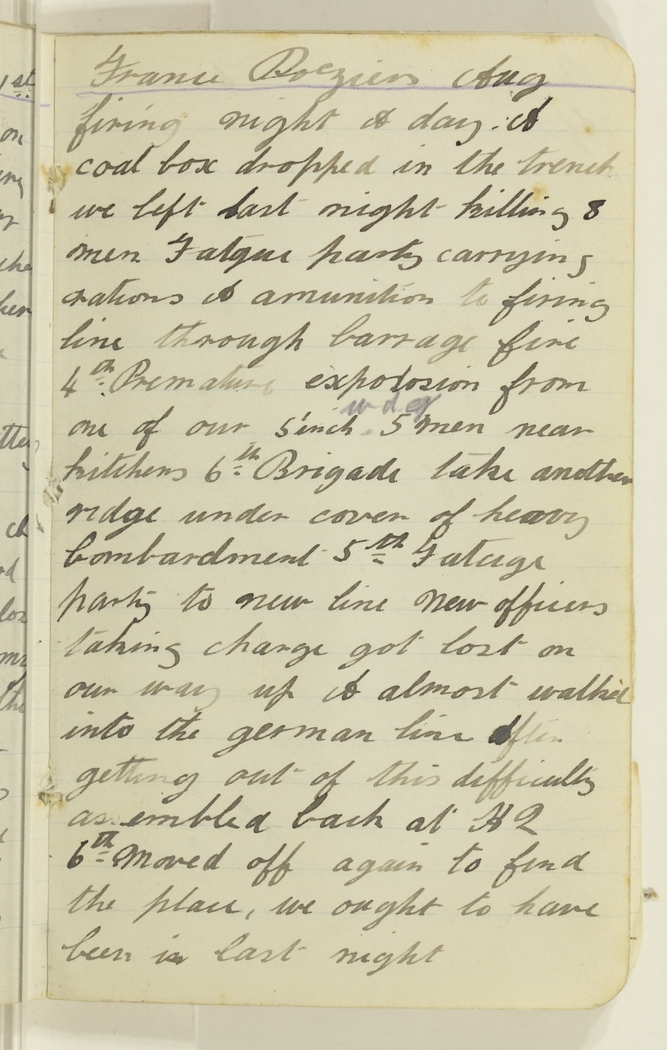 France Poeziers Aug
firing night & day. A
coal box dropped in the trench
we left last night killing 8
men Fatque party carrying
rations & amunition to firing
line through barrage fire
4th Premature expolosion from
wdg
one of our 5 inch. 5 men near
kitchens 6th Brigade take another
ridge under cover of heavy
bombardment 5th Fateige
party to new line New officers
taking charge got lost on
our way up & almost walked
into the german line After
getting out of this difficulty
assembled back at HQ
6th Moved off again to find
the place, we ought to have
been in last night